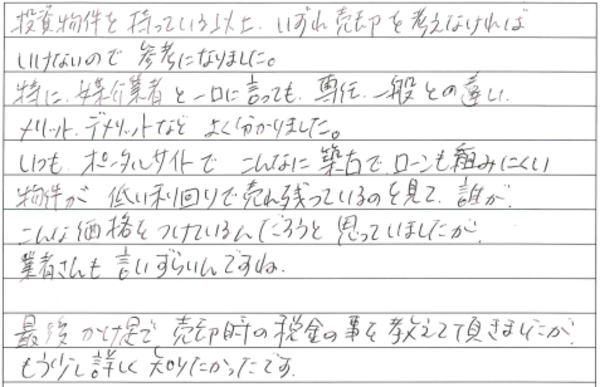 投資物件を持っている以上、いずれ売却を考えなければ
いけないので参考になりました。
特に、媒介業者と一口に言っても、専任、一般との違い、
メリット、デメリットなどよく分かりました。
いつも、ポータルサイトでこんなに築古で、ローンも組みにくい
物件が低い利回りで売れ残っているのを見て、誰が
こんな価格をつけているんだろうと思っていましたが、
業者さんも言いずらいんですね。
最後かけ足で売却時の税金の事を教えて頂きましたが、
もう少し詳しく知りたかったです。